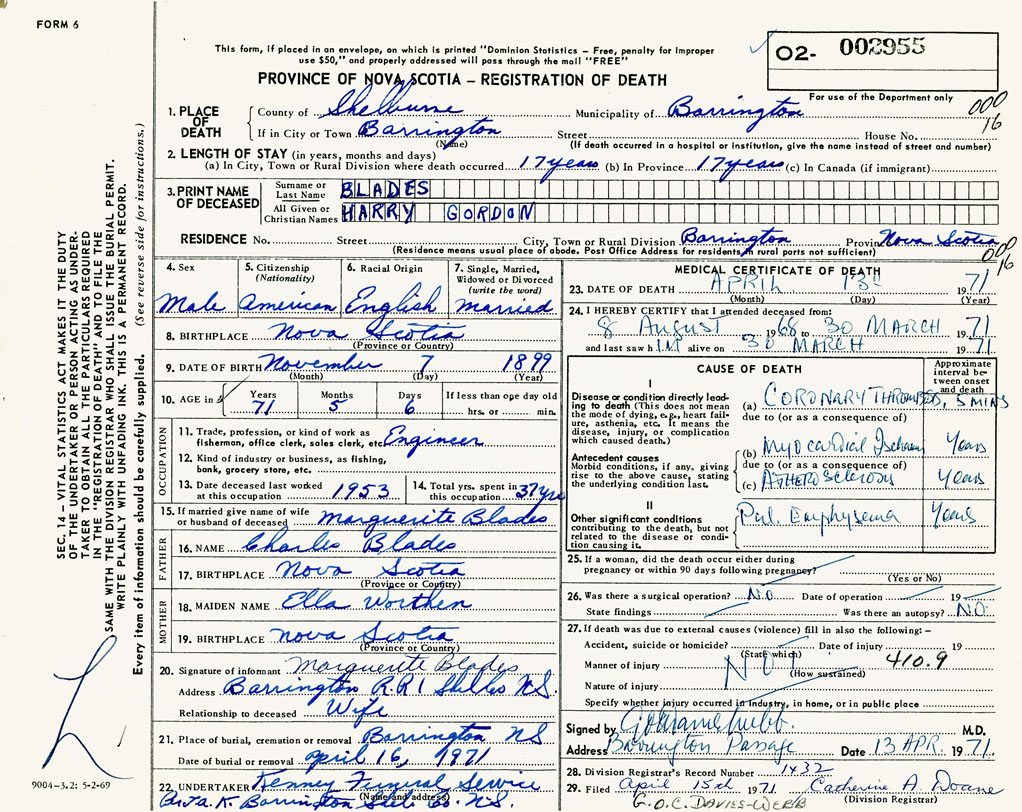 FORM 6
This form, if placed in an envelope, on which is printed "Dominion Statistics – Free, penalty for improper
use $50," and properly addressed will pass through the mail "FREE"
PROVINCE OF NOVA SCOTIA – REGISTRATION OF DEATH
O2- 002955
For use of the Department only
000
16
1. PLACE OF DEATH
County of Shelburne Municipality of Barrington
If in City or Town Barrington Street House No.
(Name) (If death occurred in a hospital or institution, give the name instead of street and number)
2. LENGTH OF STAY (in years, months and days)
(a) In City, Town or Rural Division where death occurred 17 years (b) In Province 17 years (c) In Canada (if immigrant)
3. PRINT NAME OF DECEASED
Surname or Last Name BLADES
All Given or Christian Names HARRY GORDON
RESIDENCE No. Street City, Town or Rural Division Barrington Province Nova Scotia
(Residence means usual place of abode. Post Office Address for residents in rural ports not sufficient)
000
16
SEC. 14 – VITAL STATISTICS ACT MAKES IT THE DUTY
OF THE UNDERTAKER OR PERSON ACTING AS UNDER-
TAKER TO OBTAIN ALL THE PARTICULARS REQUIRED
IN THE "REGISTRATION OF DEATH" AND TO FILE THE
SAME WITH THE DIVISION REGISTRAR WHO SHALL ISSUE THE BURIAL PERMIT.
WRITE PLAINLY WITH UNFADING INK. THIS IS A PERMANENT RECORD.
Every item of information should be carefully supplied. (See reverse side for instructions.)
4. Sex
Male
5. Citizenship
(Nationality)
American
6. Racial Origin
English
7. Single, Married,
Widowed or Divorced
(write the word)
married
8. BIRTHPLACE Nova Scotia
(Province or Country)
9. DATE OF BIRTH November 7 1899
(Month) (Day) (Year)
10. AGE in
Years 71
Months 5
Days 6
If less than one day old
hrs. or min.
OCCUPATION
11. Trade, profession, or kind of work as
fisherman, office clerk, sales clerk, etc. Engineer
12. Kind of industry or business, as fishing,
bank, grocery store, etc.
13. Date deceased last worked
at this occupation 1953
14. Total yrs. spent in
this occupation 37 yrs
15. If married give name of wife
or husband of deceased Marguerite Blades
FATHER
16. NAME Charles Blades
17. BIRTHPLACE Nova Scotia
(Province or Country)
MOTHER
18. MAIDEN NAME Ella Worthen
19. BIRTHPLACE Nova Scotia
(Province or Country)
20. Signature of informant Marguerite Blades
Address Barrington R.R1 N.S.
Relationship to deceased Wife
21. Place of burial, cremation or removal Barrington NS
Date of burial or removal April 16, 1971
22. UNDERTAKER Kenney Funeral Service
(Name and address)
Barrington N.S.
9004-3.2: 5-2-69
MEDICAL CERTIFICATE OF DEATH
23. DATE OF DEATH APRIL 13th 1971
(Month) (Day) (Year)
24. I HEREBY CERTIFY that I attended deceased from:
8 August 1968 to 30 MARCH 1971
and last saw h IM alive on 30 MARCH 1971
CAUSE OF DEATH
Approximate
interval between
onset
and death
I
Disease or condition directly lead-
ing to death (This does not mean
the mode of dying, e.g., heart fail-
ure, asthenia, etc. It means the
disease, injury, or complication
which caused death.)
(a) CORONARY THROMBOSIS, 5 MINS
due to (or as a consequence of)
Antecedent causes
Morbid conditions, if any, giving
rise to the above cause, stating
the underlying condition last.
(b) Myocardial Ischaemia Years
due to (or as a consequence of)
(c) ATHEROSclerosis Years
II
Other significant conditions
contributing to the death, but not
related to the disease or condi-
tion causing it.
Pul. Emphysema Years
25. If a woman, did the death occur either during
pregnancy or within 90 days following pregnancy?
(Yes or No)
26. Was there a surgical operation? NO Date of operation 19
State findings Was there an autopsy? NO
27. If death was due to external causes (violence) fill in also the following: –
Accident, suicide or homicide? Date of injury 19
(State which)
Manner of injury NOT 410.9
(How sustained)
Nature of injury
Specify whether injury occurred in industry, in home, or in public place
Signed by M.D.
Address Barrington Passage Date 13 APR. 1971.
28. Division Registrar's Record Number 1432
29. Filed April 15th 1971 Catherine A. Doane
(Division Registrar)
G.O.C. DAVIES-WEBB